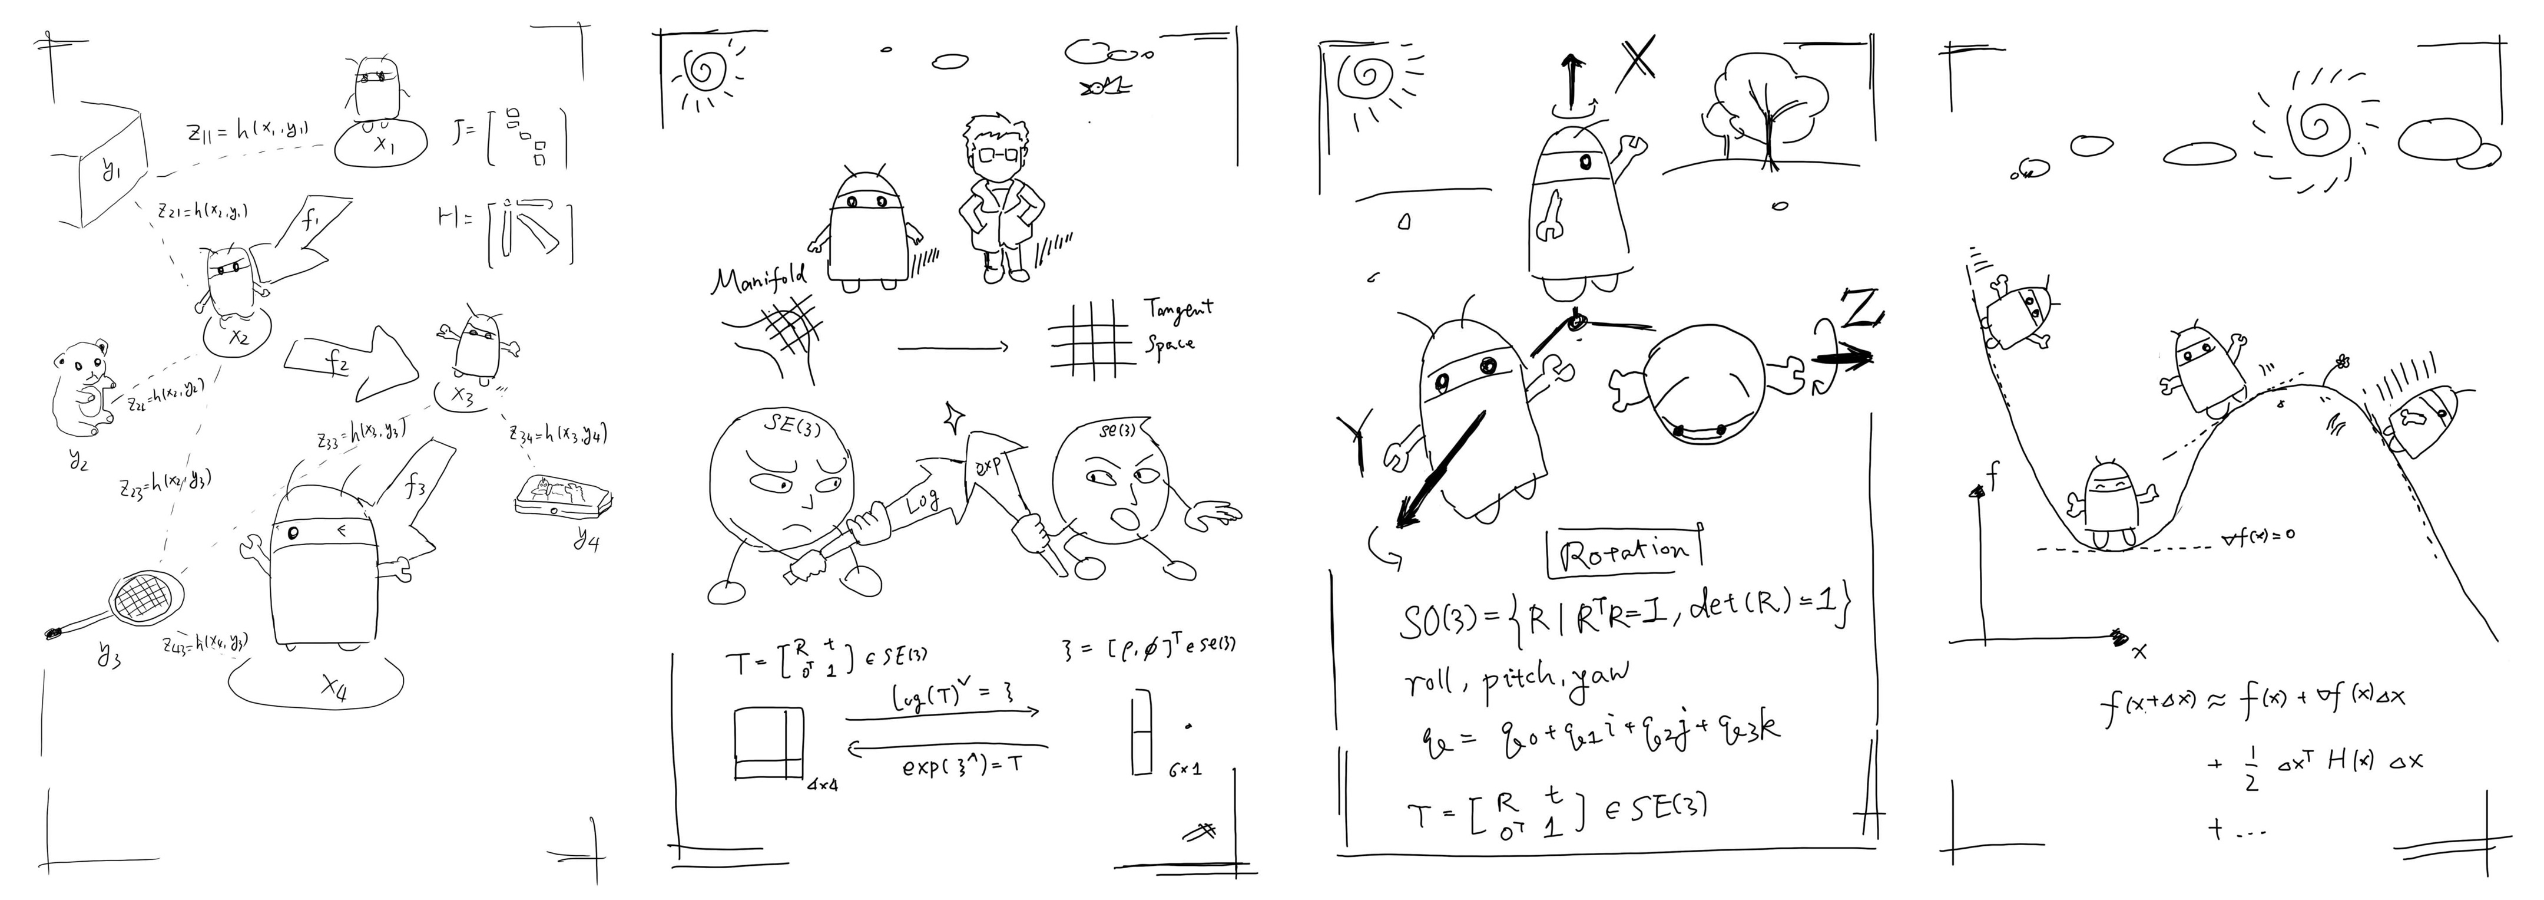 z11=h(x1,y1)
y1
x1
J=[ ]
z21=h(x2,y1)
f1
H=[ ]
x2
f2
x3
z22=h(x2,y2)
y2
z33=h(x3,y3)
z34=h(x3,y4)
z23=h(x2,y3)
f3
y4
y3
z43=h(x4,y3)
x4
Manifold
Tangent
Space
SE(3)
Log
exp
se(3)
T=[R t 0ᵀ 1]∈SE(3)
ξ=[ρ,φ]ᵀ∈se(3)
log(T)ˇ=ξ
exp(ξ^)=T
4×4
6×1
X
Z
Y
Rotation
SO(3)={R|RᵀR=I,det(R)=1}
roll, pitch, yaw
q=q0+q1i+q2j+q3k
T=[R t 0ᵀ 1]∈SE(3)
f
∇f(x)=0
x
f(x+Δx)≈f(x)+∇f(x)Δx
+ 1/2 Δxᵀ H(x) Δx
+ ...